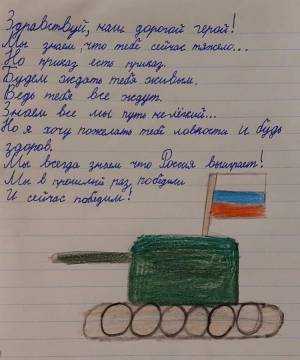 Здравствуй, наш дорогой герой!
Мы знаем, что тебе сейчас тяжело...
Но приказ есть приказ.
Будем ждать тебя живым,
Ведь тебя все ждут.
Знаем все мы путь не лёгкий...
Но я хочу пожелать тебе ловкости. И будь
здоров.
Мы всегда знаем что Россия выиграет!
Мы в прошлый раз победили
И сейчас победим!